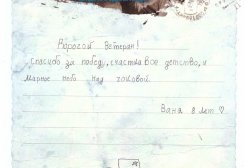 Дорогой Ветеран!
спасибо за победу, счастливое детство, и
мирное небо над головой.
Ваня 8 лет